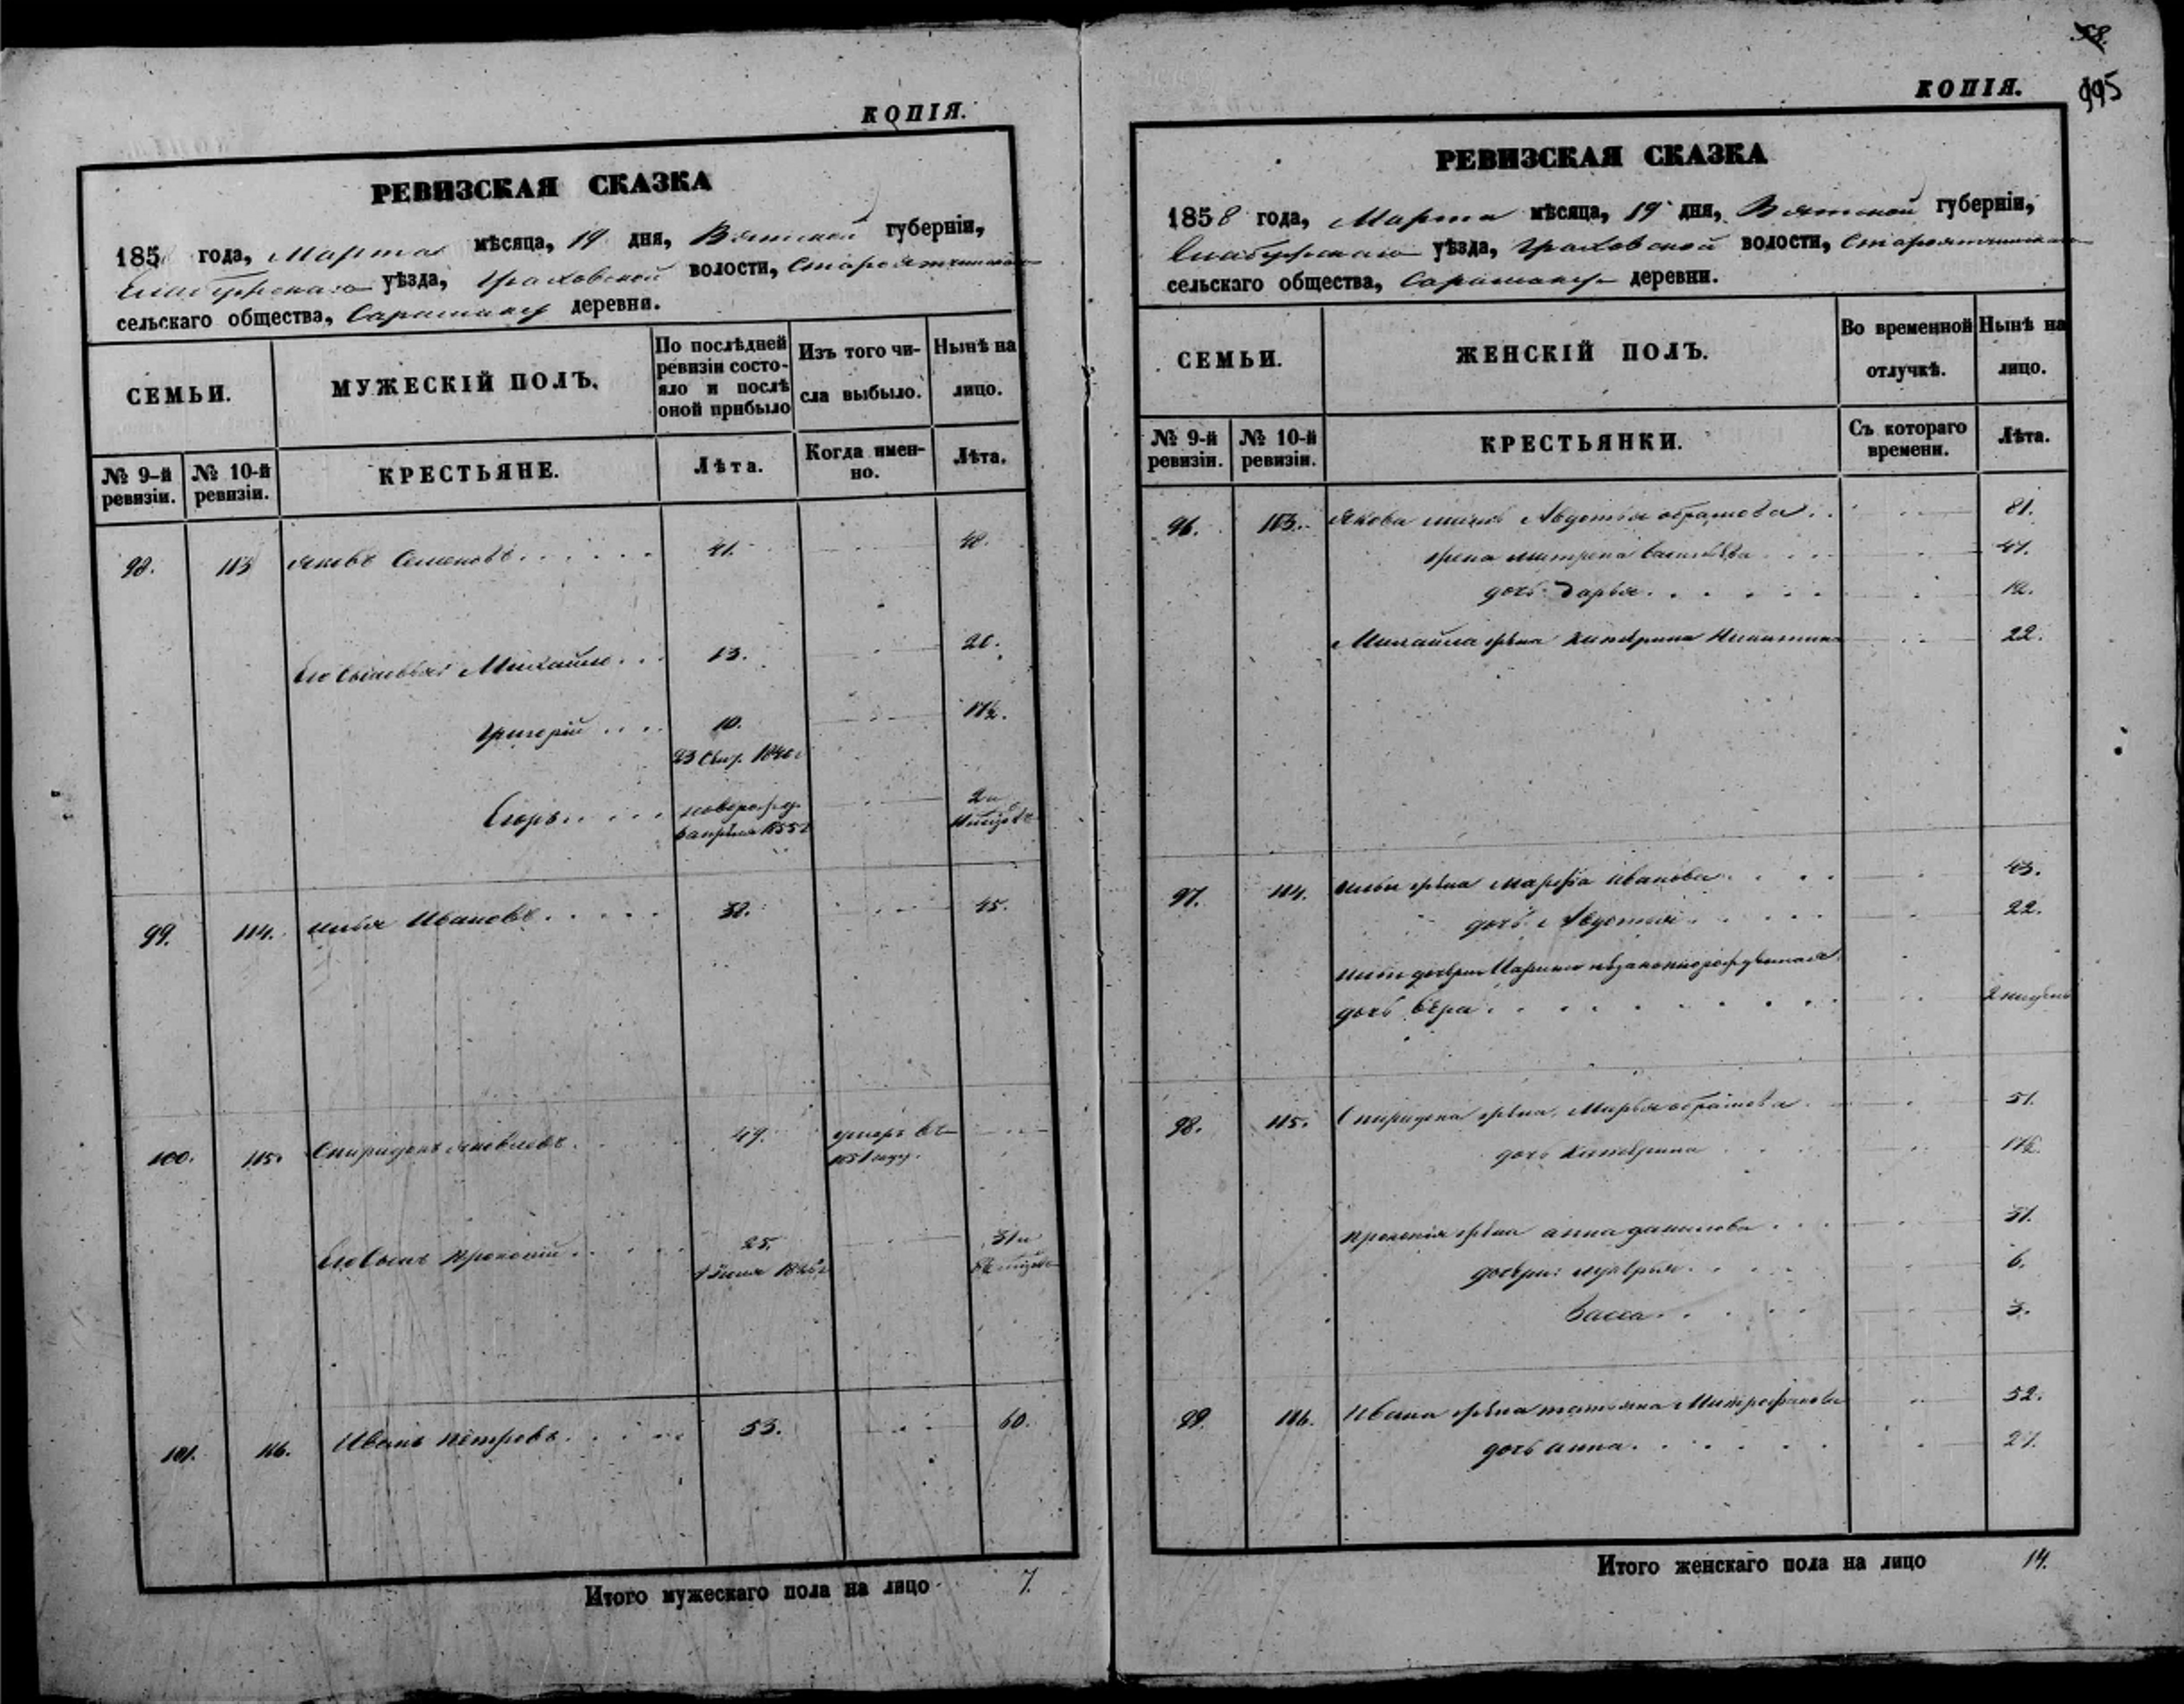 КОПІЯ.
РЕВИЗСКАЯ СКАЗКА
185 года, Марта мѣсяца, 19 дня, Вятской губерніи,
Елабужскаго уѣзда, Граховской волости,
сельскаго общества, деревни.
СЕМЬИ.
МУЖЕСКІЙ ПОЛЪ.
По послѣдней ревизіи состояло и послѣ оной прибыло
Изъ того числа выбыло.
Нынѣ на лицо.
№ 9-й ревизіи.
№ 10-й ревизіи.
КРЕСТЬЯНЕ.
Лѣта.
Когда именно.
Лѣта.
98. 113 Яковъ Семеновъ. 41. 48.
Его сыновья: Михайло. 13. 20.
Григорій 10. 17½.
23 1840
Егоръ. новорожд. 2 и
6 апрѣля 1855 11 мѣсяц
99. 114. Илья Ивановъ. 38. 45.
100. 115. Спиридонъ Яковлевъ. 49. умеръ въ
1851 году.
Его сынъ Прокопій. 25. 31 и
101. 116. Иванъ Петровъ. 53. 60.
Итого мужескаго пола на лицо 7.
58.
995
КОПІЯ.
РЕВИЗСКАЯ СКАЗКА
1858 года, Марта мѣсяца, 19 дня, Вятской губерніи,
Елабужскаго уѣзда, Граховской волости,
сельскаго общества, деревни.
СЕМЬИ.
ЖЕНСКІЙ ПОЛЪ.
Во временной отлучкѣ.
Нынѣ на лицо.
№ 9-й ревизіи.
№ 10-й ревизіи.
КРЕСТЬЯНКИ.
Съ котораго времени.
Лѣта.
96. 113. Якова Авдотья 81.
жена Матрена Васильева 47.
дочь Дарья. 12.
Михайла жена Катерина Никитина 22.
97. 114. Ильи жена Марфа Иванова. 43.
дочь Авдотья 22.
Ильи дочери Марины незаконнорожденная
дочь Вера. 2 недѣли
98. 115. Спиридона жена Марья 51.
дочь Катерина 17½.
Прокопія жена Анна Данилова 31.
дочери: Лукерья. 6.
Васса. 3.
99. 116. Ивана жена Татьяна Митрофанова 52.
дочь Анна. 27.
Итого женскаго пола на лицо 14.